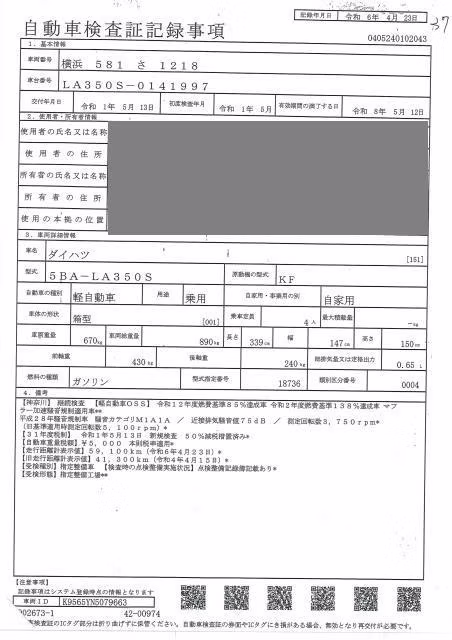 記録年月日 令和 6年 4月 23日
37
自動車検査証記録事項
0405240102043
1. 基本情報
車両番号 横浜 581 さ 1218
車台番号 LA350S-0141997
交付年月日 令和 1年 5月 13日 初度検査年月 令和 1年 5月 有効期間の満了する日 令和 8年 5月 12日
2. 使用者・所有者情報
使用者の氏名又は名称
使用者の住所
所有者の氏名又は名称
所有者の住所
使用の本拠の位置
3. 車両詳細情報
車名 ダイハツ [151]
型式 5BA-LA350S 原動機の型式 KF
自動車の種別 軽自動車 用途 乗用 自家用・事業用の別 自家用
車体の形状 箱型 [001] 乗車定員 4人 最大積載量 -kg
車両重量 670kg 車両総重量 890kg 長さ 339cm 幅 147cm 高さ 150cm
前軸重 430kg 後軸重 240kg 総排気量又は定格出力 0.65 L
燃料の種類 ガソリン 型式指定番号 18736 類別区分番号 0004
4. 備考
【神奈川】 継続検査 【軽自動車OSS】 令和12年度燃費基準85%達成車 令和2年度燃費基準138%達成車 マフ
ラー加速騒音規制適用車**
平成28年騒音規制車 騒音カテゴリM1A1A / 近接排気騒音値75dB / 測定回転数3,750rpm*
(旧基準適用時測定回転数5,100rpm)*
【31年度税制】 令和1年5月13日 新規検査 50%減税措置済み*
【自動車重量税額】¥5,000 本則税率適用*
【走行距離計表示値】59,100km(令和6年4月23日)*
【旧走行距離計表示値】41,300km(令和4年4月15日)*
【受検種別】指定整備車 【検査時の点検整備実施状況】点検整備記録簿記載あり*
【受検形態】指定整備工場**
【注意事項】
記録事項はシステム登録時点の情報となります
車両ID K9565YN5079663
002673-1 42-00974
検査証のICタグ部分は折り曲げずに保管ください。自動車検査証の券面やICタグにき損がある場合、無効となり再交付が必要です。